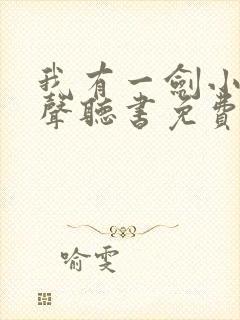 我有一劍小
聲聽書免費
喻雯